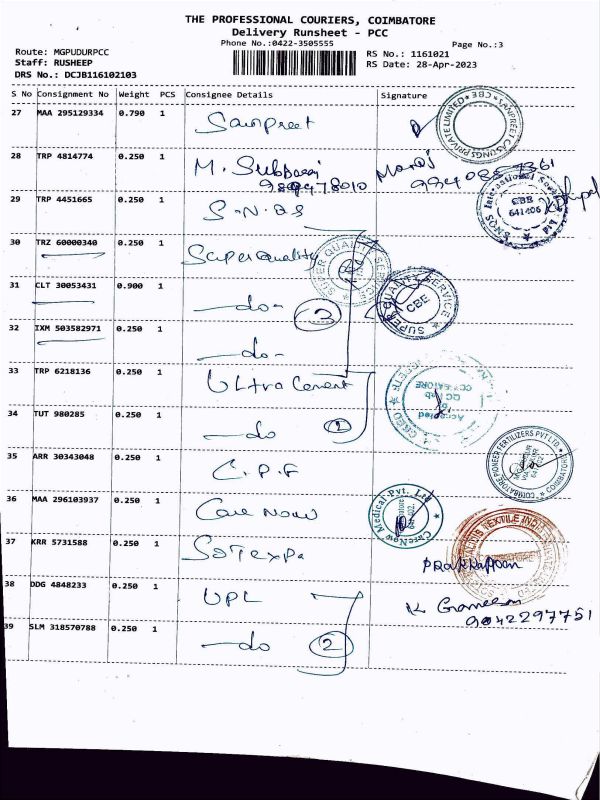 THE PROFESSIONAL COURIERS, COIMBATORE
Delivery Runsheet - PCC
Phone No.:0422-3505555
Page No.:3
Route: MGPUDURPCC
RS No.: 1161021
Staff: RUSHEEP
RS Date: 28-Apr-2023
DRS No.: DCJB116102103
S No Consignment No Weight PCS Consignee Details Signature
27 MAA 295129334 0.790 1 Sanpreet
SANPREET CASTINGS PRIVATE LIMITED * CBE *
28 TRP 4814774 0.250 1 M. Subbaraj Manoj
9894478010
29 TRP 4451665 0.250 1 S.N.QS
CBE
641406
30 TRZ 60000340 0.250 1 Super Quality
SUPER QUALITY SERVICE
31 CLT 30053431 0.900 1 -do-
3
SUPER QUALITY SERVICE
CBE
32 IXM 503582971 0.250 1 -do-
33 TRP 6218136 0.250 1 Ultra Cement
Accepted
QC Lab
34 TUT 980285 0.250 1 -do
2
35 ARR 30343048 0.250 1 C.P.F
COIMBATORE PIONEER FERTILIZERS PVT LTD.
36 MAA 296103937 0.250 1 Care Now
CareNow Medical Pvt. Ltd
37 KRR 5731588 0.250 1
38 DDG 4848233 0.250 1 UPL
K
9042297751
39 SLM 318570788 0.250 1 -do
2